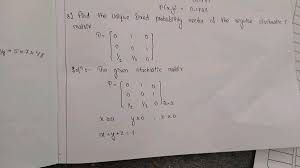 P(X,Y) =
3) Find the unique fixed probability vector of the regular stochastic
matrix
P = [ 0 1 0
0 0 1
1/2 1/2 0 ]
Solⁿ :- The given stochastic matrix
P = [ 0 1 0
0 0 1
1/2 1/2 0 ]
x ≥ 0 y ≥ 0 , z ≥ 0
x + y + z = 1